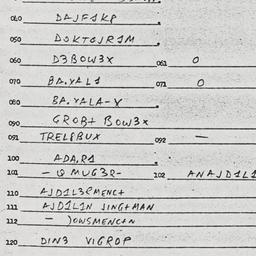 040 DAJF1KP
050 DOKTOJR1M
060 D3BOW3X 061 0
070 BA.YAL1 071 0
080 BA.YALA-V
090 GROB+ BOW3X
091 TRELEBUX 092 —
100 ADA,R1
101 - Q MUG3R- 102 ANAJD1L1
110 AJD1L3RMENC+
111 AJD1L1N JING+MAN
112 - JOWSMENC+N
120 DIN3 VIGROP